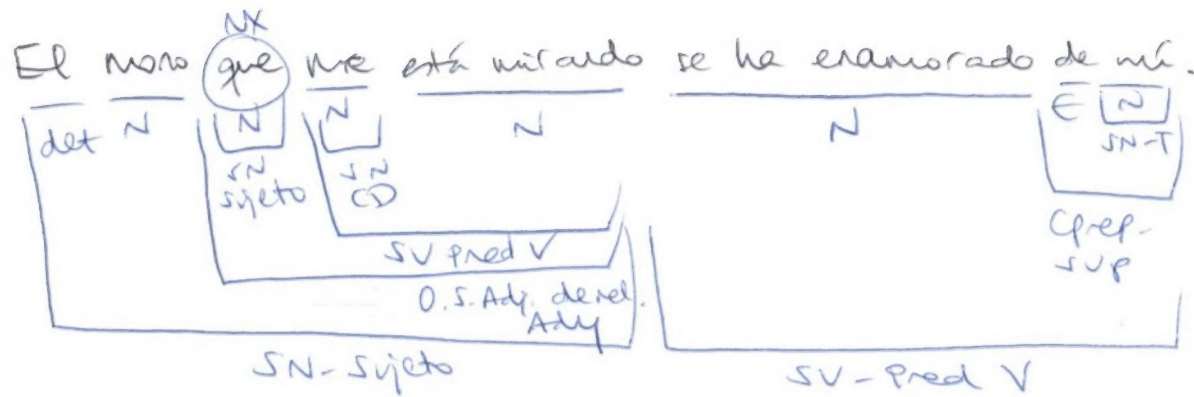 NX
El moro que me está mirando se ha enamorado de mí.
det N N N N N E N
SN sujeto SN CD SN-T
SV pred V Cprep-sup
O.S.Adj. de rel. Ady
SN-Sujeto SV-Pred V